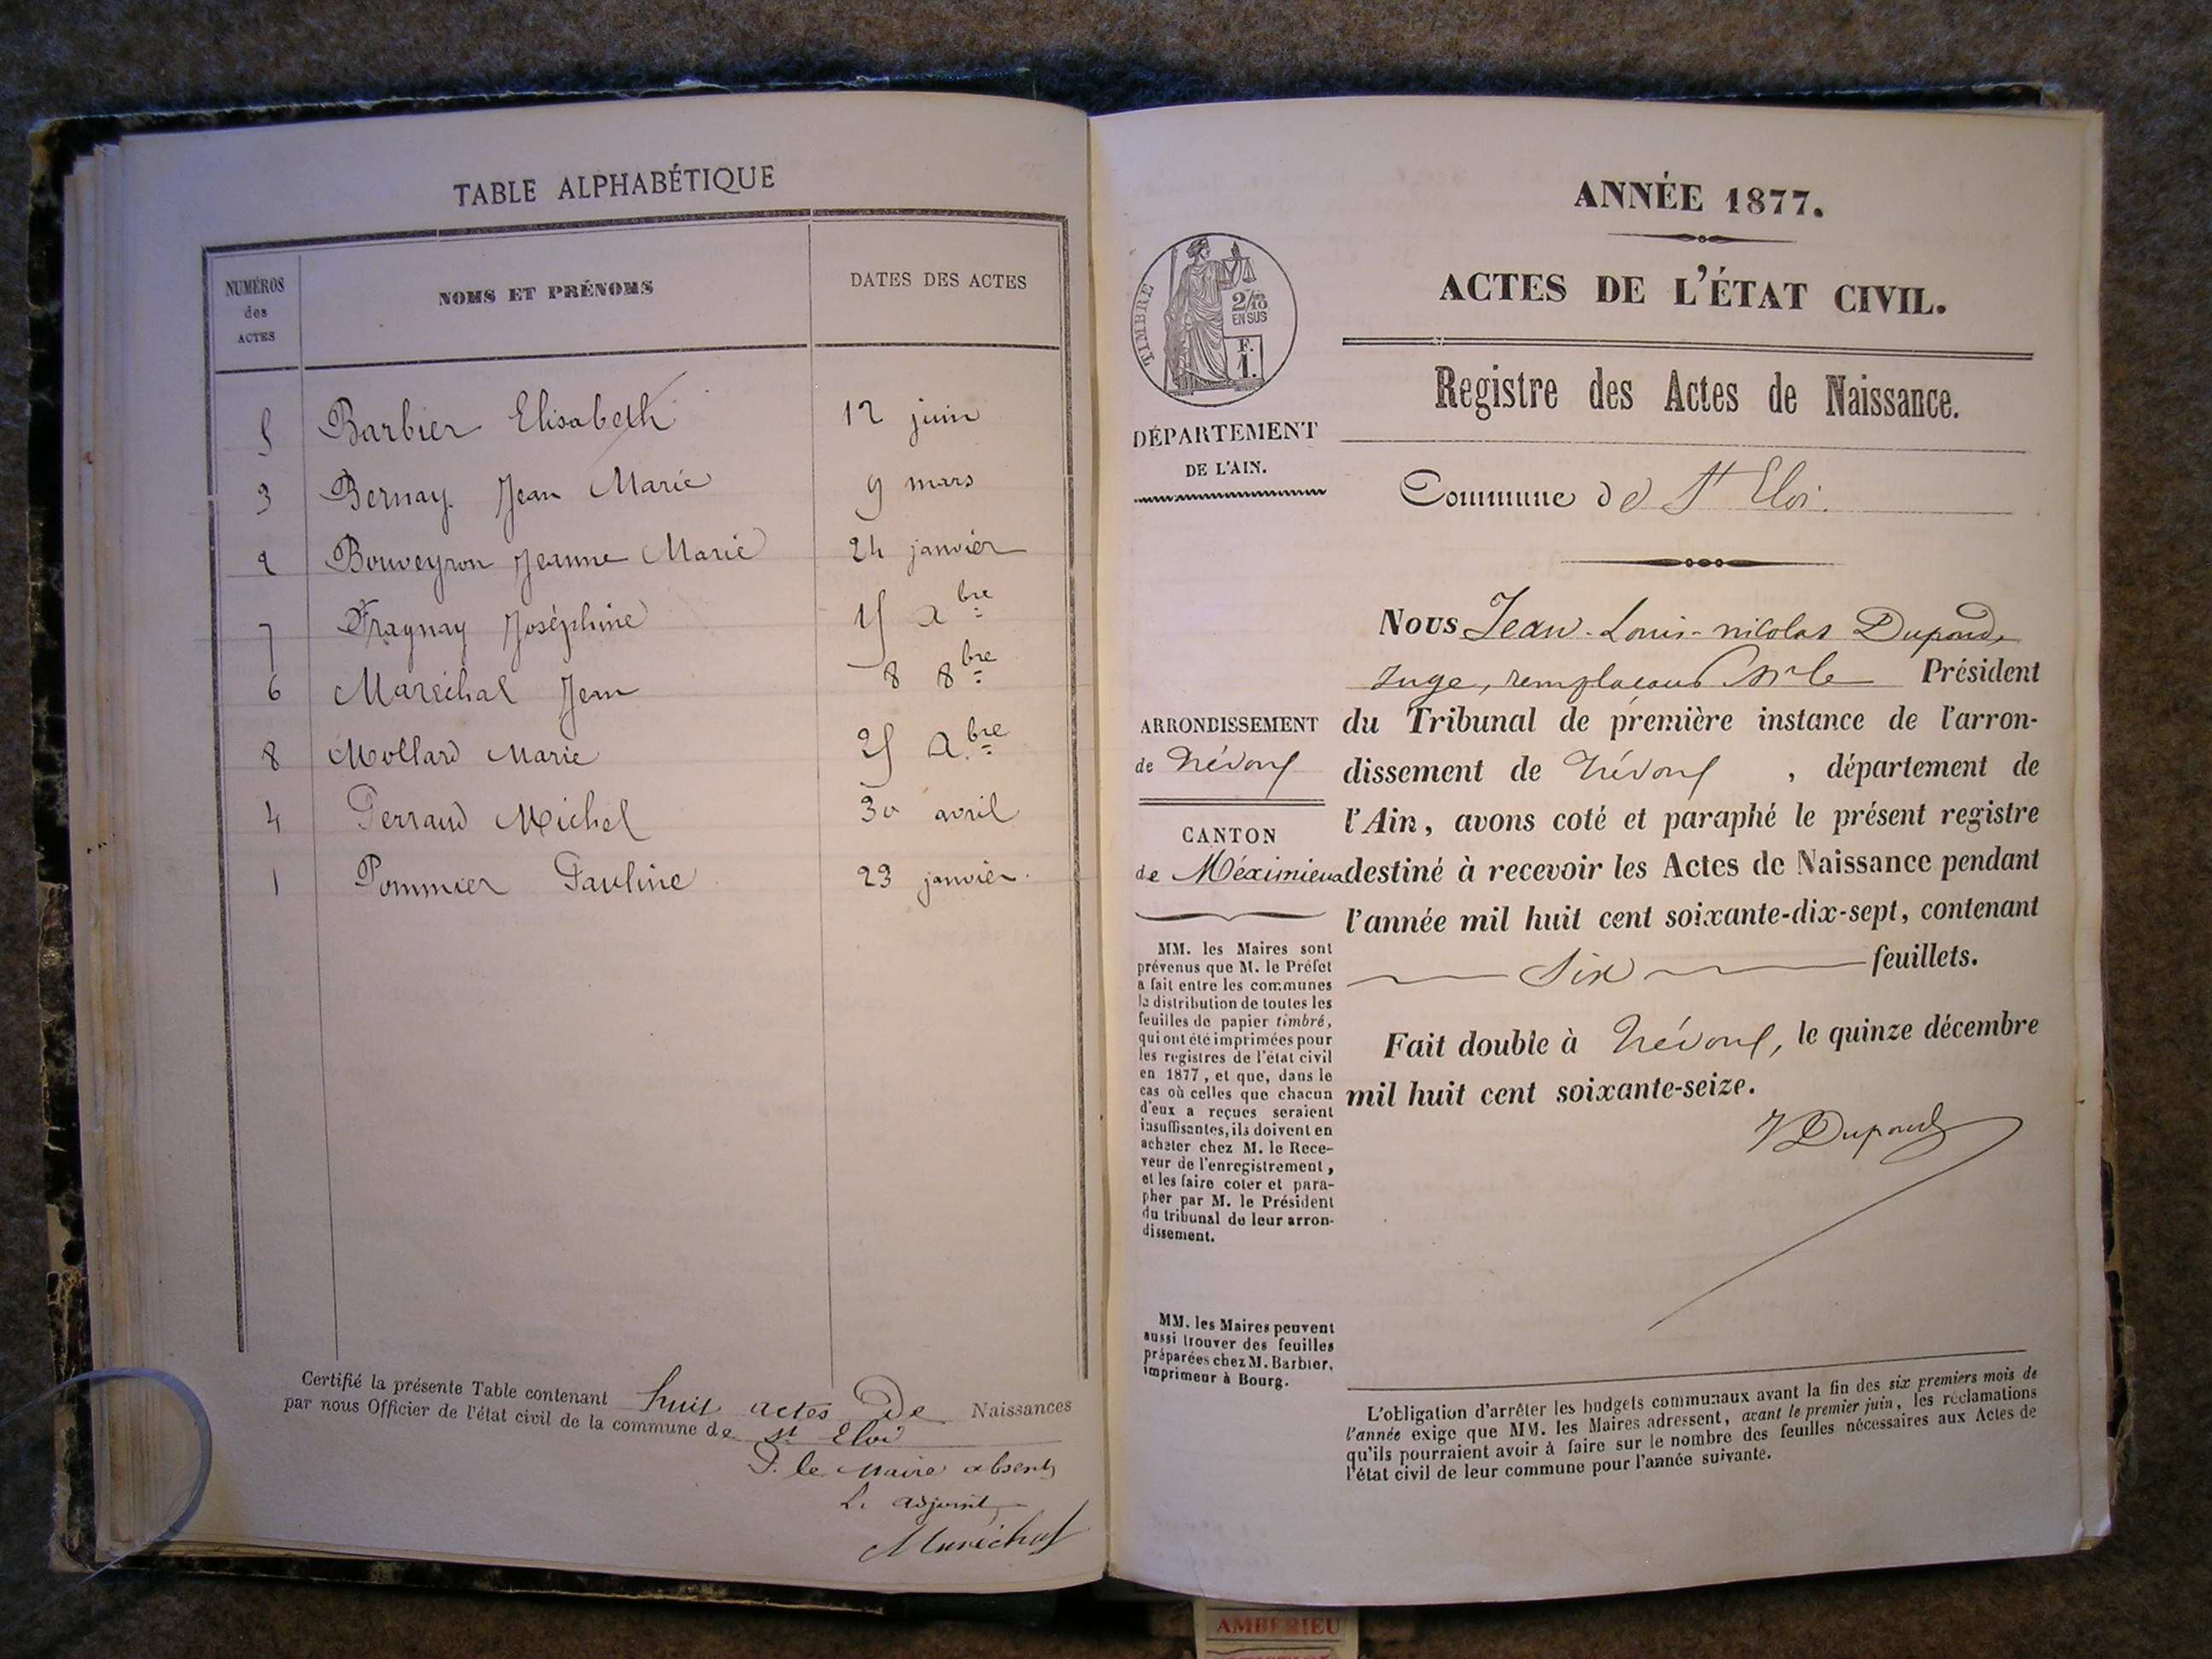 TABLE ALPHABÉTIQUE
NUMÉROS des ACTES
NOMS ET PRÉNOMS
DATES DES ACTES
5 Barbier Elisabeth 12 juin
3 Bernay Jean Marie 9 mars
2 Bouveyron Jeanne Marie 24 janvier
7 Fragnay Joséphine 15 Xbre
6 Maréchal Jean 8 8bre
8 Mollard Marie 25 Xbre
4 Perraud Michel 30 avril
1 Pommier Pauline 23 janvier.
Certifié la présente Table contenant huit actes de Naissances
par nous Officier de l'état civil de la commune de St Eloi
P. le Maire absent,
L. adjoint,
Maréchal
ANNÉE 1877.
ACTES DE L'ÉTAT CIVIL.
Registre des Actes de Naissance.
TIMBRE
2/10
EN SUS
F.
1.
DÉPARTEMENT
DE L'AIN.
Commune de St Eloi.
Nous Jean-Louis-nicolas Dupond,
Juge, remplaçant Mr le Président
du Tribunal de première instance de l'arron-
dissement de Trévoux, département de
l'Ain, avons coté et paraphé le présent registre
destiné à recevoir les Actes de Naissance pendant
l'année mil huit cent soixante-dix-sept, contenant
six feuillets.
Fait double à Trévoux, le quinze décembre
mil huit cent soixante-seize.
Dupond
ARRONDISSEMENT
de Trévoux
CANTON
de Méximieux
MM. les Maires sont
prévenus que M. le Préfet
a fait entre les communes
la distribution de toutes les
feuilles de papier timbré,
qui ont été imprimées pour
les registres de l'état civil
en 1877, et que, dans le
cas où celles que chacun
d'eux a reçues seraient
insuffisantes, ils doivent en
acheter chez M. le Rece-
veur de l'enregistrement,
et les faire coter et para-
pher par M. le Président
du tribunal de leur arron-
dissement.
MM. les Maires peuvent
aussi trouver des feuilles
préparées chez M. Barbier,
imprimeur à Bourg.
L'obligation d'arrêter les budgets communaux avant la fin des six premiers mois de
l'année exige que MM. les Maires adressent, avant le premier juin, les réclamations
qu'ils pourraient avoir à faire sur le nombre des feuilles nécessaires aux Actes de
l'état civil de leur commune pour l'année suivante.
AMBERIEU